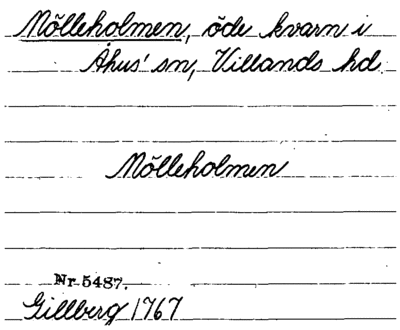 Mölleholmen, öde kvarn i
Åhus' sn, Villands hd.
Mölleholmen
Nr 5487.
Gillberg 1767